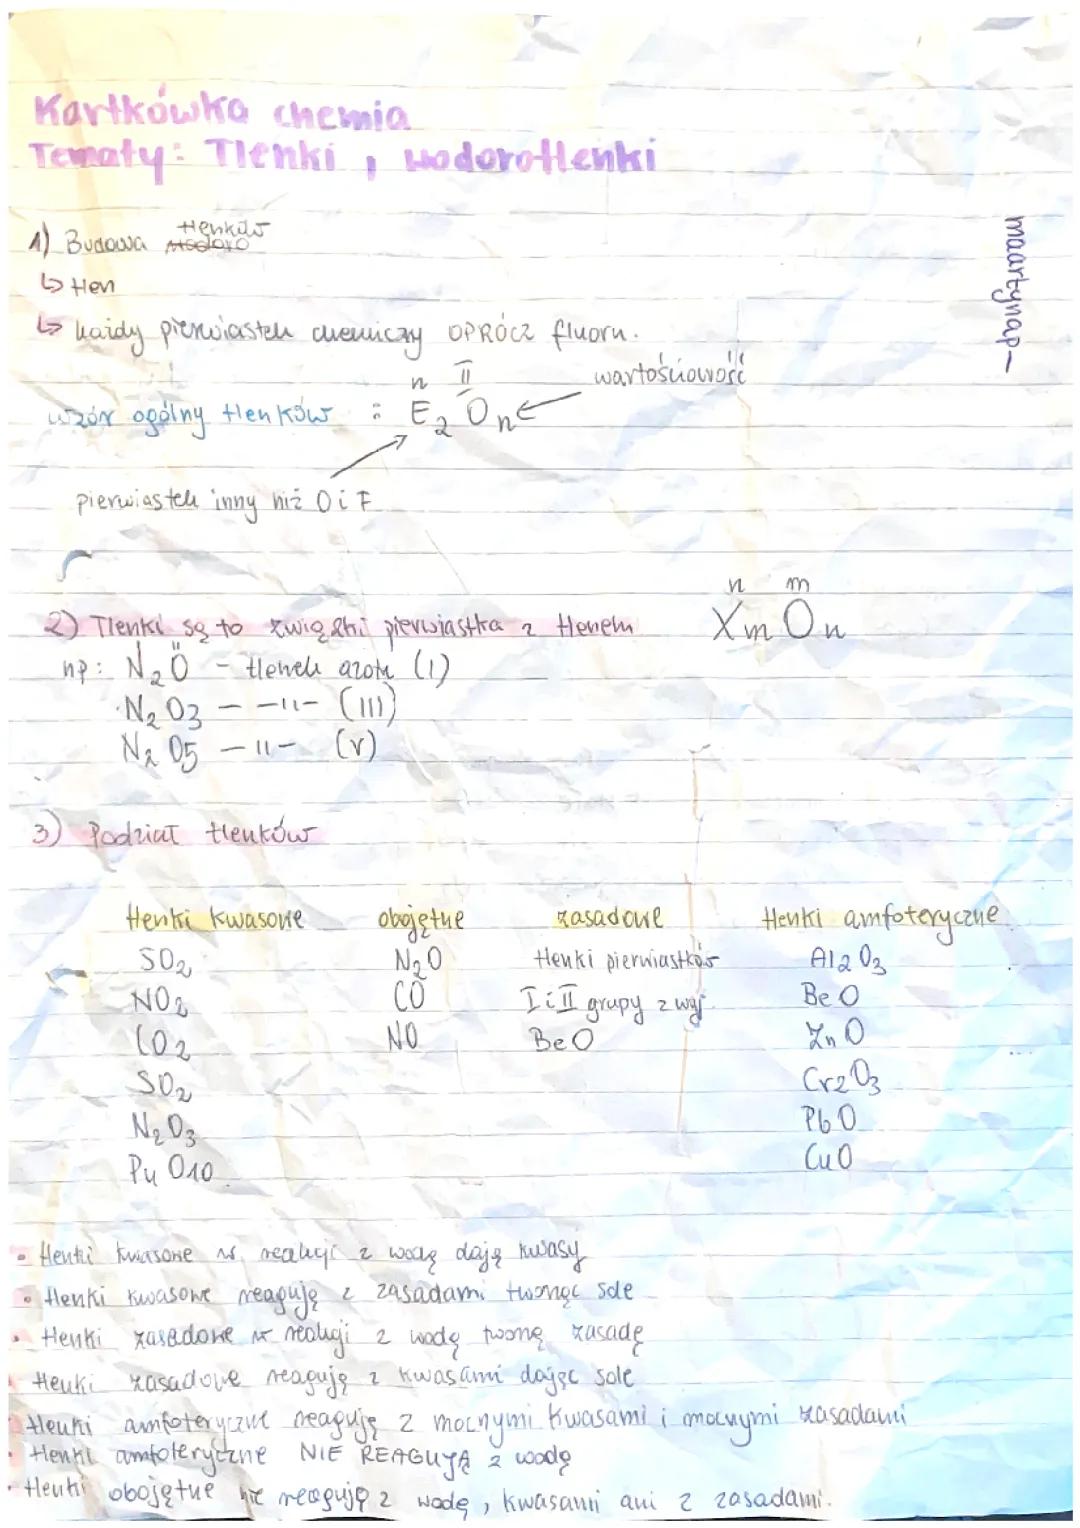 Kartkówka chemia
Tematy: Tlenki, wodorotlenki
maartynap-
1) Budowa tlenków
↳ tlen
↳ każdy pierwiastek chemiczny OPRÓCZ fluoru.
n II wartościowość
wzór ogólny tlenków : E2On
pierwiastek inny niż O i F
n m
2) Tlenki są to związki pierwiastka z tlenem XmOn
np: N2O - tlenek azotu (I)
N2O3 - -11- (III)
N2O5 -11- (V)
3) Podział tlenków
tlenki kwasowe obojętne zasadowe tlenki amfoteryczne
SO2 N2O tlenki pierwiastków Al2O3
NO2 CO I i II grupy z wyj. BeO
CO2 NO BeO ZnO
SO2 Cr2O3
N2O3 PbO
P4O10 CuO
• tlenki kwasowe w reakcji z wodą dają kwasy
• tlenki kwasowe reagują z zasadami tworząc sole
• tlenki zasadowe w reakcji z wodą tworzą zasadę
tlenki zasadowe reagują z kwasami dając sole
• tlenki amfoteryczne reagują z mocnymi kwasami i mocnymi zasadami
• tlenki amfoteryczne NIE REAGUJĄ z wodą
• tlenki obojętne nie reagują z wodą, kwasami ani z zasadami.